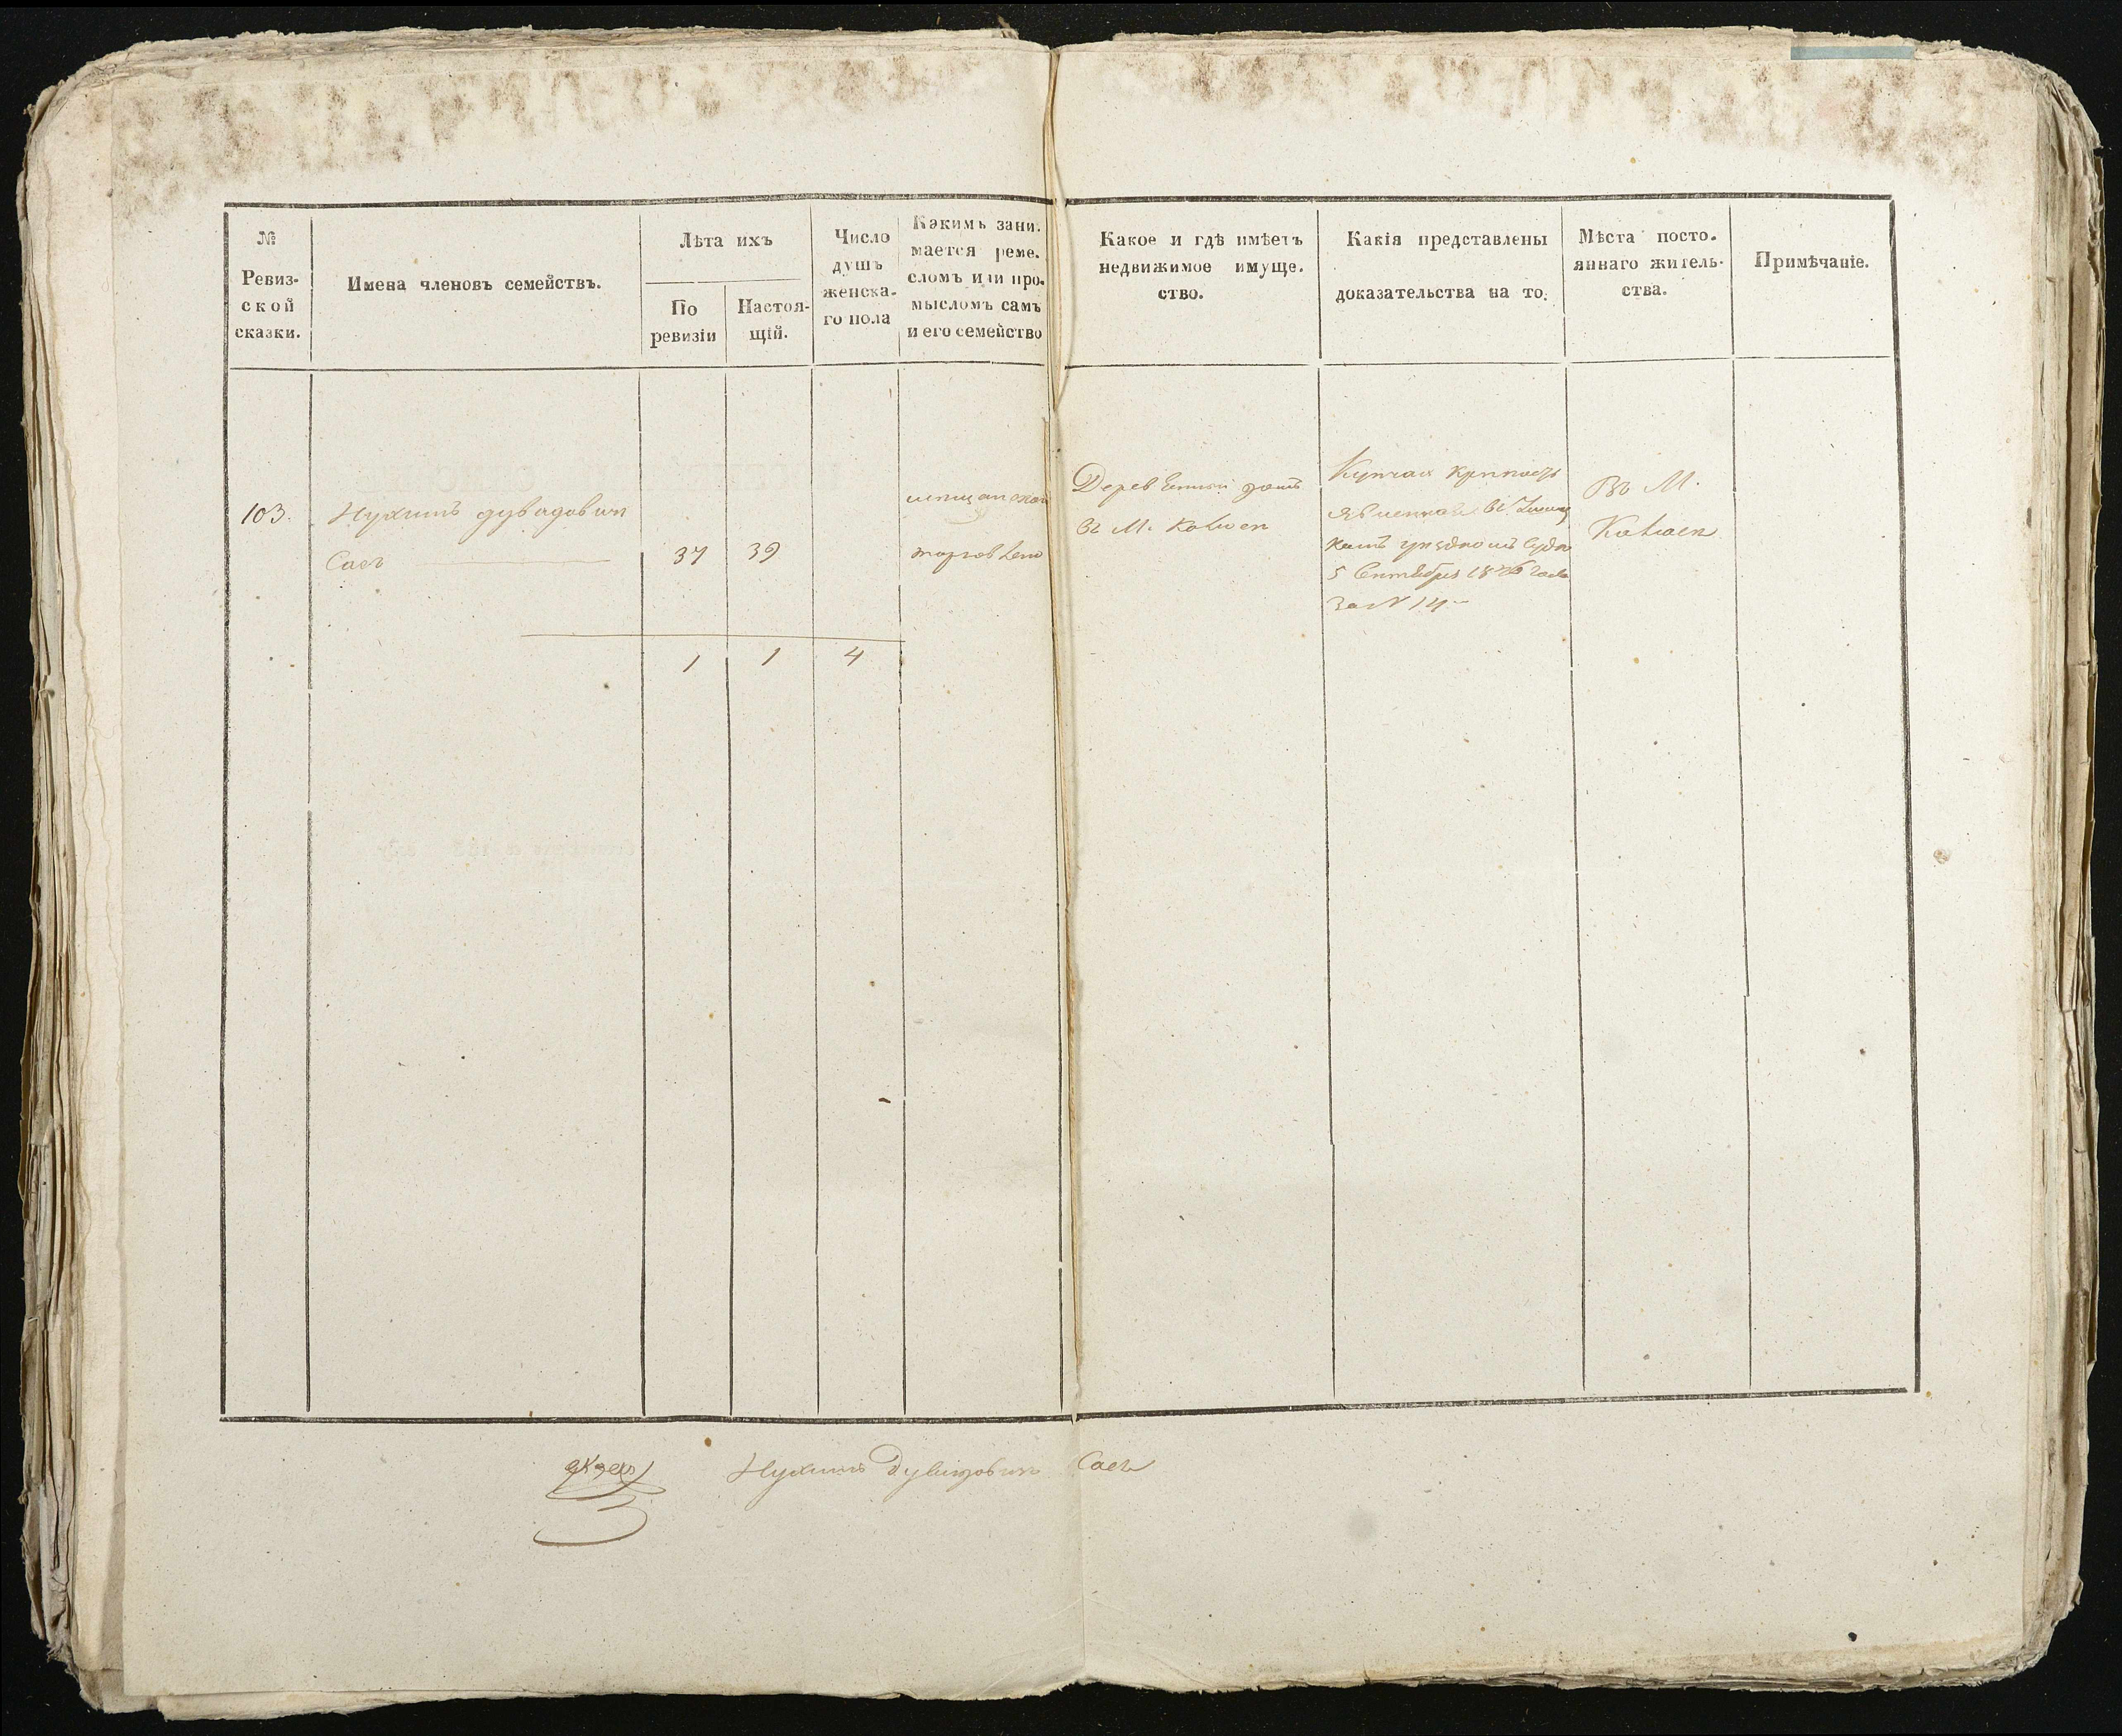 №
Ревиз-
ской
сказки.
Имена членовъ семействъ.
Лѣта ихъ
По
ревизіи
Настоя-
щій.
Число
душъ
женска-
го пола
Какимъ зани-
мается реме-
сломъ или про-
мысломъ самъ
и его семейство
Какое и гдѣ имѣетъ
недвижимое имуще-
ство.
Какія представлены
доказательства на то.
Мѣста посто-
яннаго житель-
ства.
Примѣчаніе.
103.
Нухимъ
37
39
мѣщанскою
торговлею
Деревянный домъ
въ М.
Купчая крѣпость
явленная въ
уѣздномъ судѣ
5 Сентября года
за N 14
Въ М.
1
1
4
Нухимъ